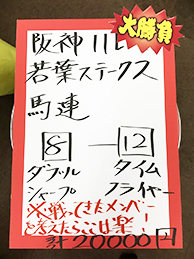 大勝負
阪神11R
若葉ステークス
馬連
8 — 12
ダブル タイム
シャープ フライヤー
※戦ってきたメンバー
を考えたらここは楽!
計20000円